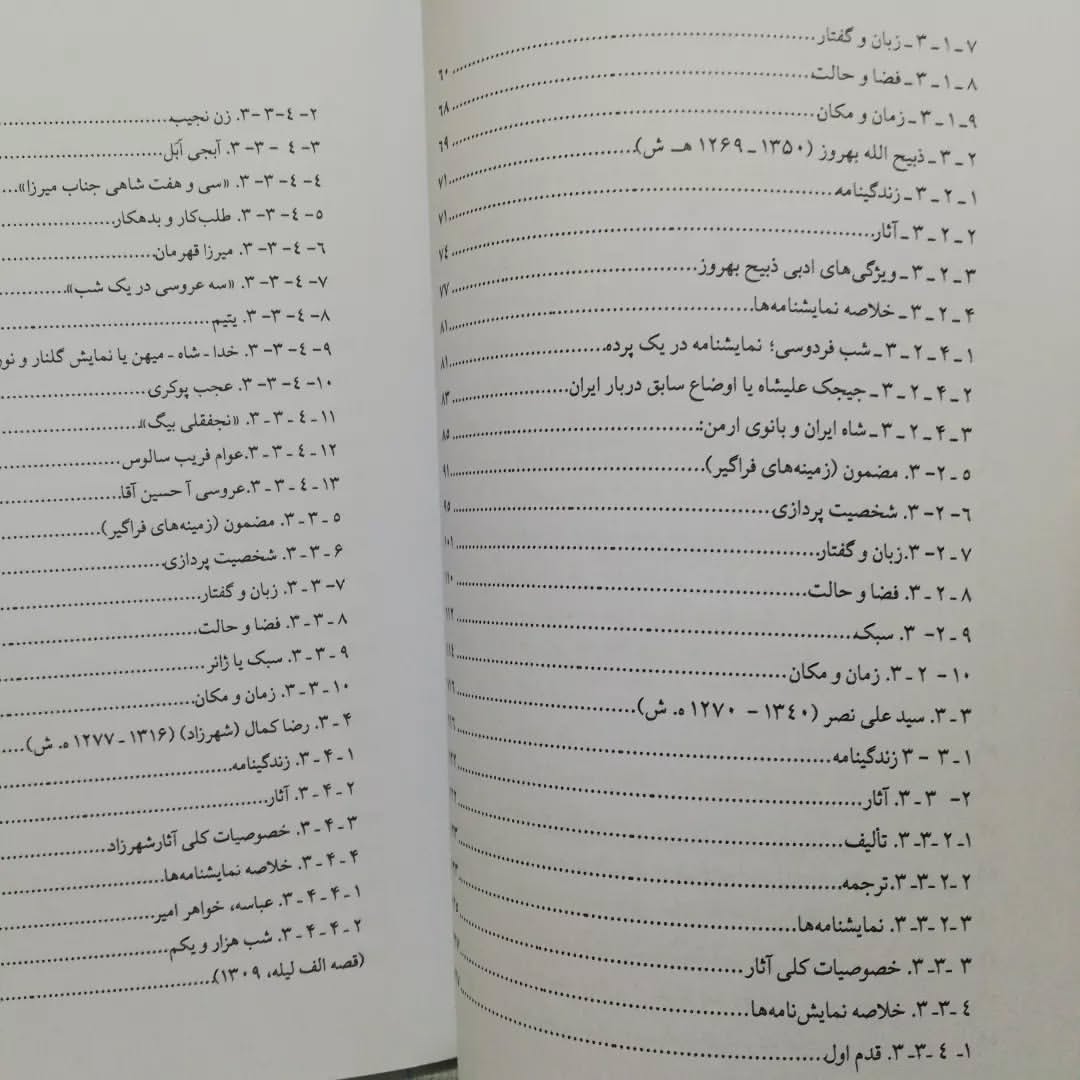 ۷ـ۱ـ۳ـ زبان و گفتار
۸ـ۱ـ۳ـ فضا و حالت ۶۰
۹ـ۱ـ۳ـ زمان و مکان ۶۸
۲ـ۳ـ ذبیح الله بهروز (۱۳۵۰ـ ۱۲۶۹ هـ ش) ۶۹
۱ـ۲ـ۳ـ زندگینامه ۷۱
۲ـ۲ـ۳ـ آثار ۷۱
۳ـ۲ـ۳ـ ویژگی‌های ادبی ذبیح بهروز ۷۴
۴ـ۲ـ۳ـ خلاصه نمایشنامه‌ها ۷۷
۱ـ۴ـ۲ـ۳ـ شب فردوسی؛ نمایشنامه در یک پرده ۸۱
۲ـ۴ـ۲ـ۳ـ جیجک علیشاه یا اوضاع سابق دربار ایران ۸۱
۳ـ۴ـ۲ـ۳ـ شاه ایران و بانوی ارمن: ۸۳
۵ـ۲-۳. مضمون (زمینه‌های فراگیر) ۸۵
۶-۲-۳. شخصیت پردازی ۹۱
۷ـ۲-۳.زبان و گفتار ۹۵
۸ـ۲ـ۳. فضا و حالت ۱۰۱
۹ـ۲-۳. سبک ۱۱۰
۱۰-۲ـ۳. زمان و مکان ۱۱۲
۳ـ۳. سید علی نصر (۱۳۴۰ - ۱۲۷۰ ه. ش) ۱۱۴
۱ـ۳ -۳ زندگینامه
۲- ۳ـ۳. آثار
۱ـ۲ـ۳ـ۳. تألیف
۲ـ۲ـ۳ـ۳.ترجمه
۳ـ۲ـ۳ـ۳. نمایشنامه‌ها
۳ـ۳ـ۳. خصوصیات کلی آثار
۴ـ۳ـ۳. خلاصه نمایش‌نامه‌ها
۱ـ ۴ـ۳ـ۳. قدم اول
۲-۴-۳-۳. زن نجیب
۳-۴ -۳-۳. آبجی آبَل
۴-۴-۳-۳. «سی و هفت شاهی جناب میرزا»
۵-۴-۳-۳. طلب‌کار و بدهکار
۶-۴-۳-۳. میرزا قهرمان
۷-۴-۳-۳. «سه عروسی در یک شب»
۸-۴-۳-۳. یتیم
۹-۴-۳-۳. خدا ـ شاه ـ میهن یا نمایش گلنار و
۱۰-۴-۳-۳. عجب پوکری
۱۱ـ۴ـ۳ـ۳. «نجفقلی بیگ»
۱۲ـ۴ـ۳-۳.عوام فریب سالوس
۱۳ـ۴ـ۳-۳.عروسی آ حسین آقا
۵ـ۳ـ۳. مضمون (زمینه‌های فراگیر)
۶ـ۳ـ۳. شخصیت پردازی
۷-۳ـ۳. زبان و گفتار
۸ـ۳ـ۳. فضا و حالت
۹ـ۳ـ۳. سبک یا ژانر
۱۰ـ۳ـ۳. زمان و مکان
۴ـ۳. رضا کمال (شهرزاد) (۱۳۱۶ـ ۱۲۷۷ ه. ش)
۱ـ۴ـ۳. زندگینامه
۲ـ۴ـ۳. آثار
۳ـ۴ـ۳. خصوصیات کلی آثارشهرزاد
۴ـ۴ـ۳. خلاصه نمایشنامه‌ها
۱ـ۴ـ۴ـ۳. عباسه، خواهر امیر
۲ـ۴ـ۴ـ۳. شب هزار و یکم
(قصه الف لیله، ۱۳۰۹)